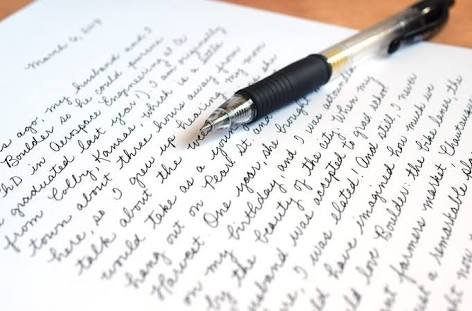 March 6, 2017
s ago, my husband and I
Boulder so he could pursue
PhD in Aerospace Engineering at C
graduated last year). I am originally
from Colby, Kansas, which is a little
town about three hours away from
here, so I grew up hearing my mom
talk about the
would take as a young
hang out on Pearl St. and
Harvest. One year, she brought
on my birthday and I was astounded
by the beauty of the city. When my
husband was accepted to grad school
here, I was elated! And still, I never
could have imagined how much we
would love Boulder: the bike lanes, the
farmers market, Chautauqua
just a remarkable